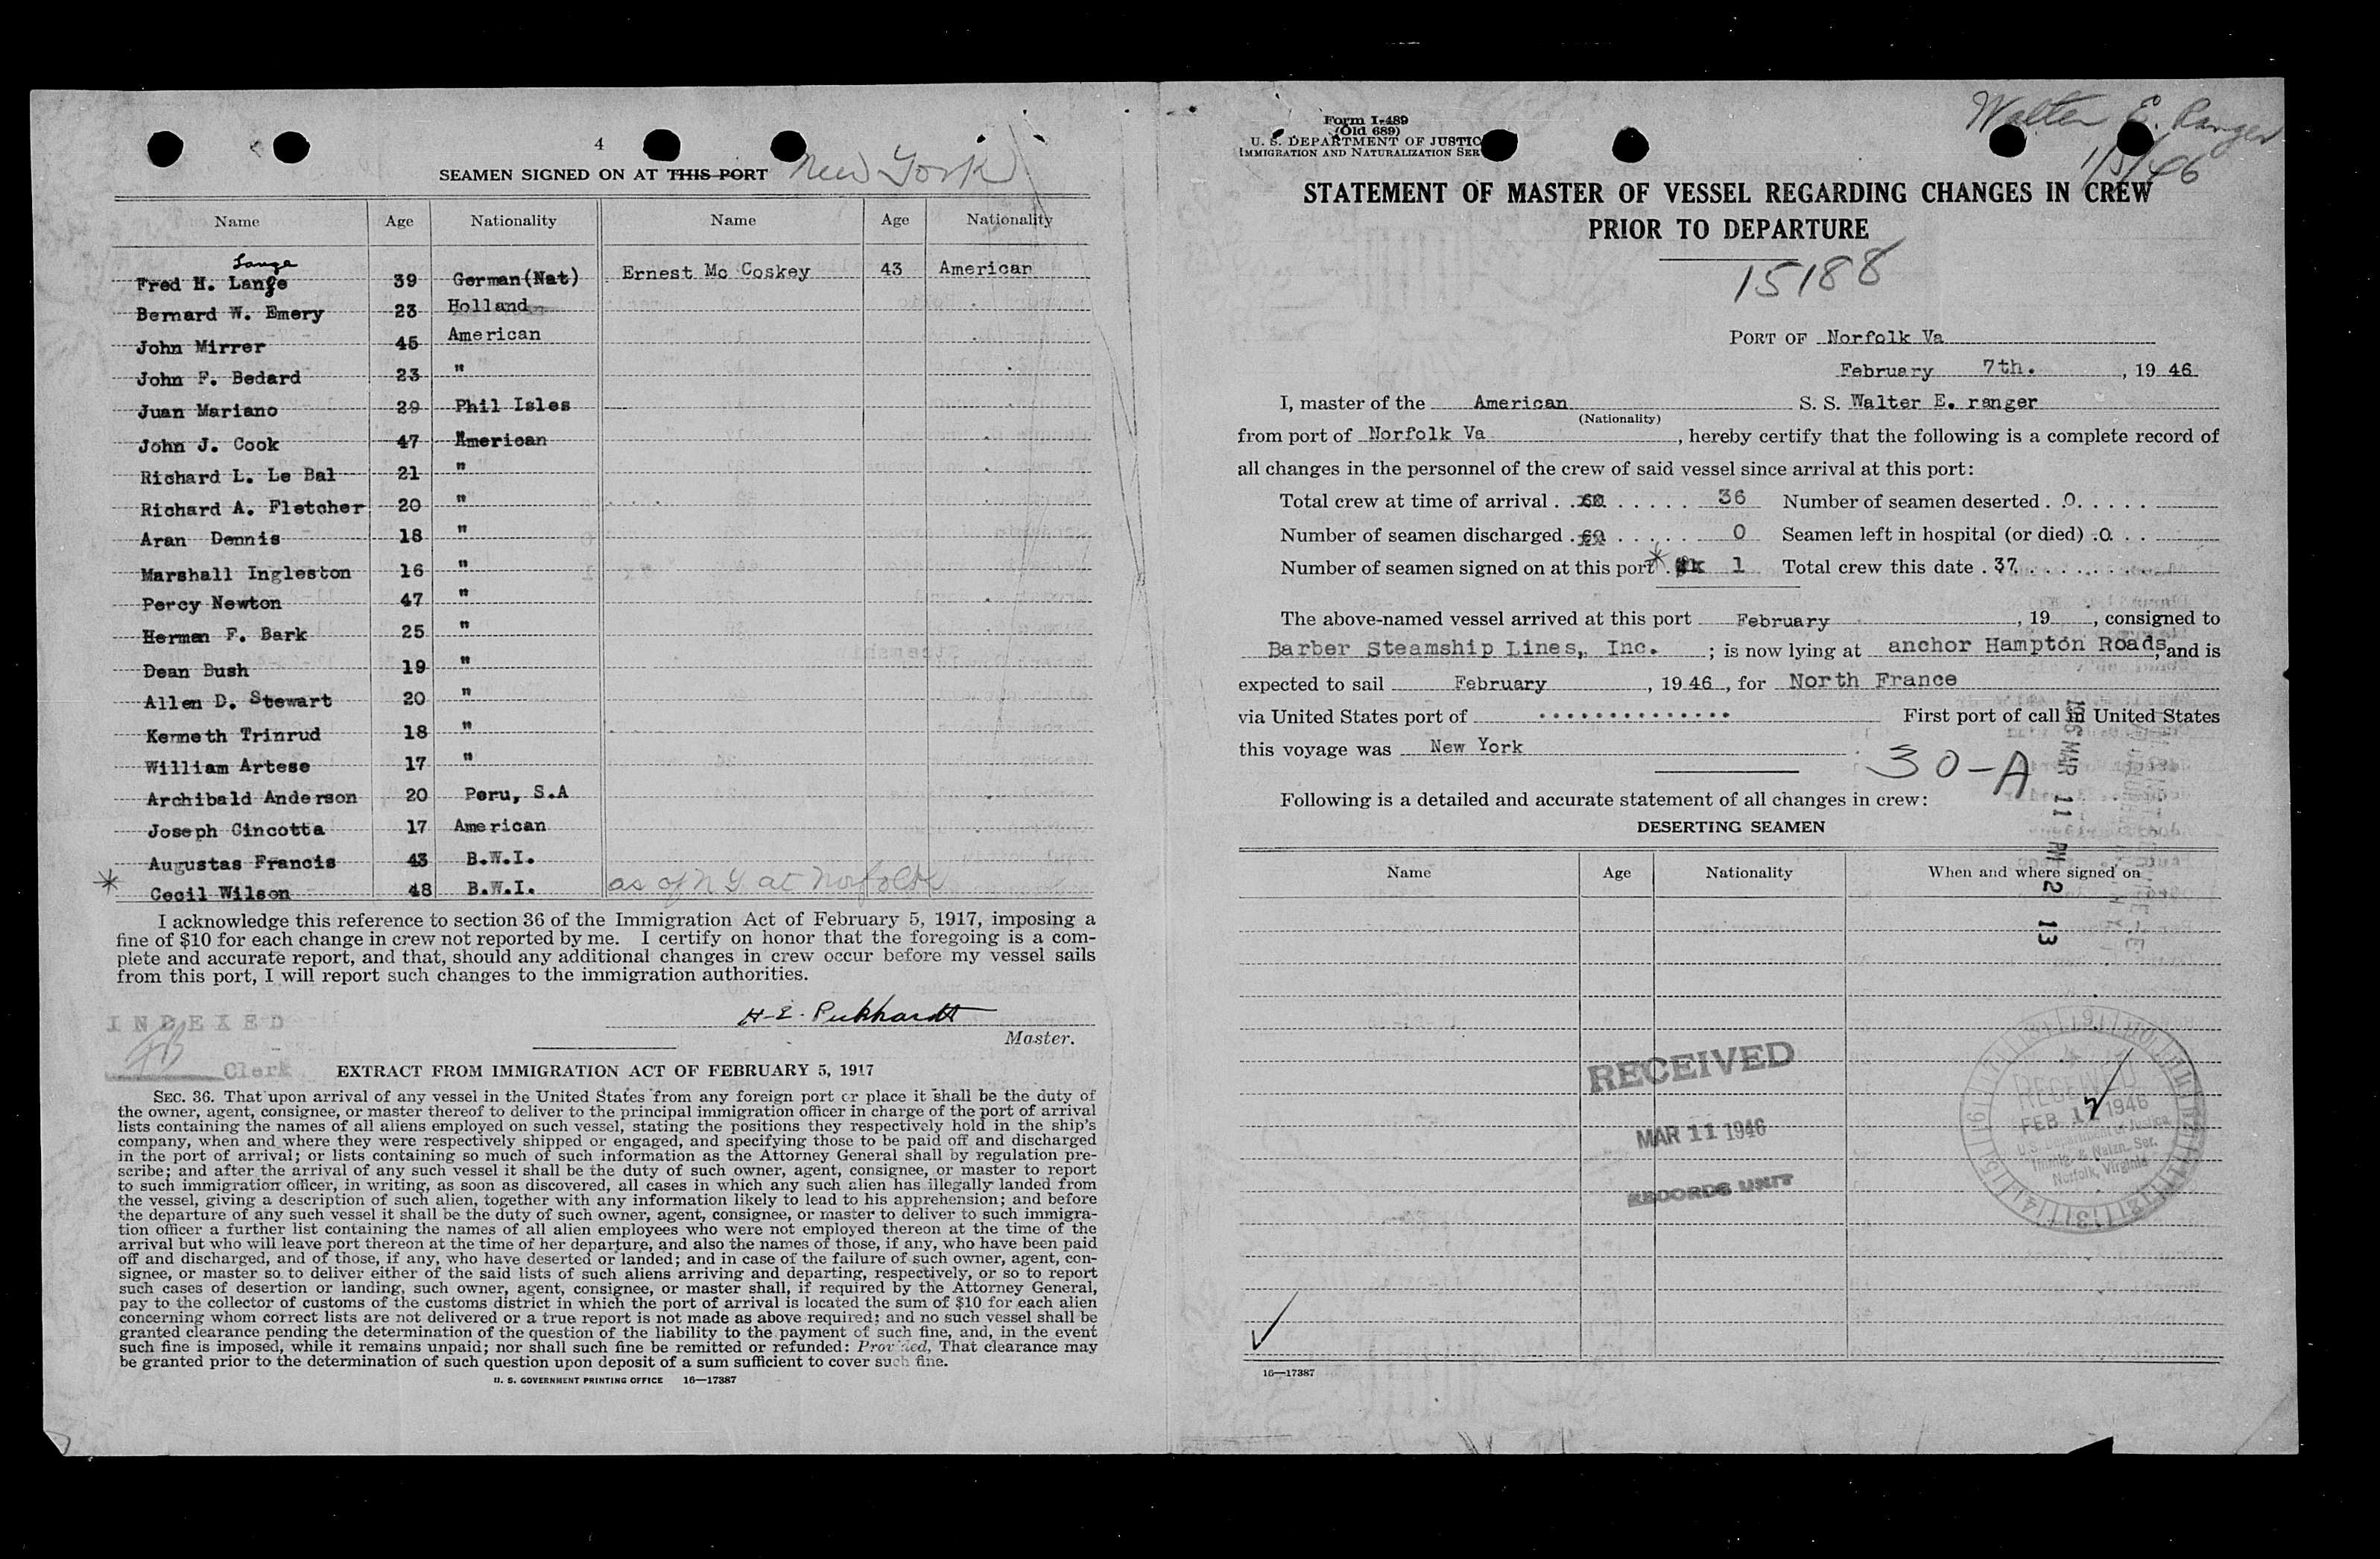 4
SEAMEN SIGNED ON AT THIS PORT New York
Name Age Nationality Name Age Nationality
Lange
Fred H. Lange 39 German(Nat) Ernest Mc Coskey 43 American
Bernard W. Emery 23 Holland
John Mirrer 45 American
John F. Bedard 23 "
Juan Mariano 29 Phil Isles
John J. Cook 47 American
Richard L. Le Bal 21 "
Richard A. Fletcher 20 "
Aran Dennis 18 "
Marshall Ingleston 16 "
Percy Newton 47 "
Herman F. Bark 25 "
Dean Bush 19 "
Allen D. Stewart 20 "
Kenneth Trinrud 18 "
William Artese 17 "
Archibald Anderson 20 Peru, S.A
Joseph Cincotta 17 American
Augustas Francis 43 B.W.I.
* Cecil Wilson 48 B.W.I. as of N Y at Norfolk
I acknowledge this reference to section 36 of the Immigration Act of February 5, 1917, imposing a
fine of $10 for each change in crew not reported by me. I certify on honor that the foregoing is a com-
plete and accurate report, and that, should any additional changes in crew occur before my vessel sails
from this port, I will report such changes to the immigration authorities.
H. E. Pukhardt
Master.
INDEXED
Clerk
EXTRACT FROM IMMIGRATION ACT OF FEBRUARY 5, 1917
SEC. 36. That upon arrival of any vessel in the United States from any foreign port or place it shall be the duty of
the owner, agent, consignee, or master thereof to deliver to the principal immigration officer in charge of the port of arrival
lists containing the names of all aliens employed on such vessel, stating the positions they respectively hold in the ship's
company, when and where they were respectively shipped or engaged, and specifying those to be paid off and discharged
in the port of arrival; or lists containing so much of such information as the Attorney General shall by regulation pre-
scribe; and after the arrival of any such vessel it shall be the duty of such owner, agent, consignee, or master to report
to such immigration officer, in writing, as soon as discovered, all cases in which any such alien has illegally landed from
the vessel, giving a description of such alien, together with any information likely to lead to his apprehension; and before
the departure of any such vessel it shall be the duty of such owner, agent, consignee, or master to deliver to such immigra-
tion officer a further list containing the names of all alien employees who were not employed thereon at the time of the
arrival but who will leave port thereon at the time of her departure, and also the names of those, if any, who have been paid
off and discharged, and of those, if any, who have deserted or landed; and in case of the failure of such owner, agent, con-
signee, or master so to deliver either of the said lists of such aliens arriving and departing, respectively, or so to report
such cases of desertion or landing, such owner, agent, consignee, or master shall, if required by the Attorney General,
pay to the collector of customs of the customs district in which the port of arrival is located the sum of $10 for each alien
concerning whom correct lists are not delivered or a true report is not made as above required; and no such vessel shall be
granted clearance pending the determination of the question of the liability to the payment of such fine, and, in the event
such fine is imposed, while it remains unpaid; nor shall such fine be remitted or refunded: Provided, That clearance may
be granted prior to the determination of such question upon deposit of a sum sufficient to cover such fine.
U. S. GOVERNMENT PRINTING OFFICE 16—17387
Form I-489
(Old 689)
U. S. DEPARTMENT OF JUSTIC
IMMIGRATION AND NATURALIZATION SER
Walter E. Ranger
1/5/46
STATEMENT OF MASTER OF VESSEL REGARDING CHANGES IN CREW
PRIOR TO DEPARTURE
15188
PORT OF Norfolk Va
February 7th. , 19 46
I, master of the American S. S. Walter E. ranger
(Nationality)
from port of Norfolk Va , hereby certify that the following is a complete record of
all changes in the personnel of the crew of said vessel since arrival at this port:
Total crew at time of arrival . . 36 Number of seamen deserted . . 0
Number of seamen discharged . 0 Seamen left in hospital (or died) . 0
Number of seamen signed on at this port * . 1 Total crew this date . 37
The above-named vessel arrived at this port February , 19 , consigned to
Barber Steamship Lines, Inc. ; is now lying at anchor Hampton Roads, and is
expected to sail February , 19 46 , for North France
via United States port of .............. First port of call in United States
this voyage was New York .
30-A
1946 MAR 11 PM 2 13
Following is a detailed and accurate statement of all changes in crew:
DESERTING SEAMEN
Name Age Nationality When and where signed on
RECEIVED
MAR 11 1946
RECORDS UNIT
RECEIVED
FEB 1946
U.S. Department of Justice
Immig. & Natzn. Ser.
Norfolk, Virginia
16—17387